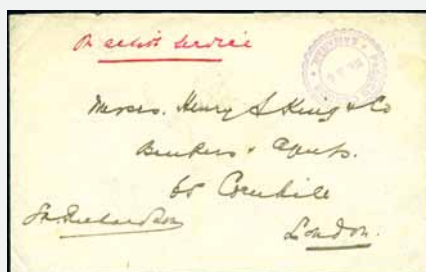 On active Service
Messrs. Henry S King & Co
Bankers & Agents.
65 Cornhill
London.
Richardson